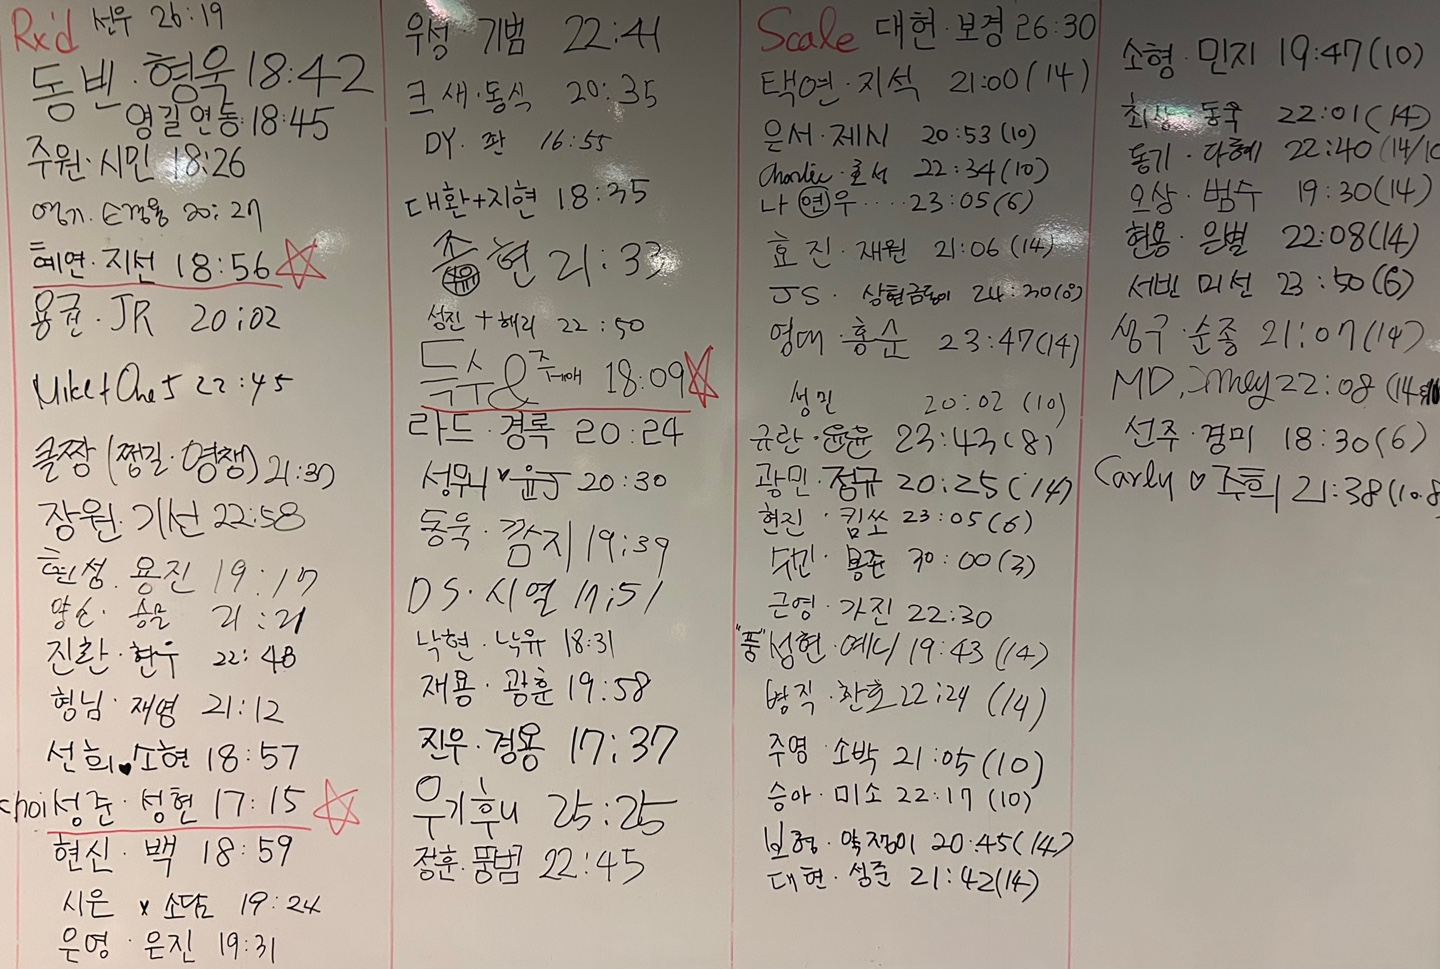 Rx'd 선우 26:19
동빈·형욱 18:42
영길 연동 18:45
주원·시민 18:26
20:27
혜연·지선 18:56
용권·JR 20:02
Mike + One 5 22:45
클짱 (쩡길·영쟁) 21:30
장원·기선 22:58
현성·용진 19:17
21:21
진환·현우 22:48
형님·재영 21:12
선희♥소현 18:57
choi 성준·성현 17:15
현신·백 18:59
시은 x 소담 19:24
은영·은진 19:31
우성 기범 22:41
크새·동식 20:35
DY·판 16:55
대환+지현 18:35
현 21:33
성진 + 해리 22:50
득수& 18:09
라드·경록 20:24
20:30
동욱·깜지 19:39
DS·시열 17:51
낙현·낙유 18:31
재용·광훈 19:58
진우·경용 17:37
우기후니 25:25
정훈·뚱범 22:45
Scale 대헌·보경 26:30
택연·지석 21:00 (14)
은서·제시 20:53 (10)
Charlie·효성 22:34 (10)
나 연우 ···· 23:05 (6)
효진·재원 21:06 (14)
JS· 24:30
영대·홍순 23:47 (14)
성민 20:02 (10)
규란·윤윤 23:43 (8)
광민·정규 20:25 (14)
현진·킴쏘 23:05 (6)
수민·봉준 30:00 (3)
근영·가진 22:30
"풍" 성현·예니 19:43 (14)
병직·찬호 22:24 (14)
주영·소박 21:05 (10)
승아·미소 22:17 (10)
보형·약쟁이 20:45 (14)
대현·성준 21:42 (14)
소형·민지 19:47 (10)
최상·동욱 22:01 (14)
동기·다혜 22:40 (14/10
오상·범수 19:30 (14)
현용·은별 22:08 (14)
서빈 미선 23:50 (6)
성구·순종 21:07 (14)
MD, 22:08 (14
선주·경미 18:30 (6)
Carly ♡ 주희 21:38 (10.8